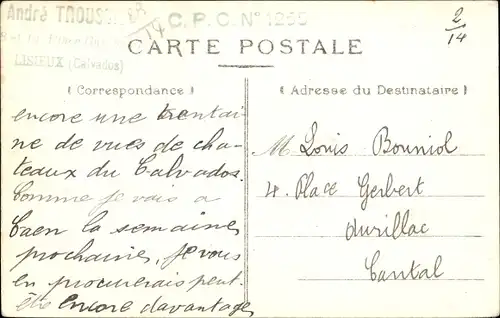 André TROUS
C.P.C. N° 1255
LISIEUX (Calvados)
2/14
CARTE POSTALE
Correspondance
Adresse du Destinataire
encore une trentai
ne de vues de cha-
teaux du Calvados.
Comme je vais a
Caen la semaine
prochaine, je vous
en procurerais peut
être encore davantage
M Louis Bouniol
4. Place Gerbert
Aurillac
Cantal